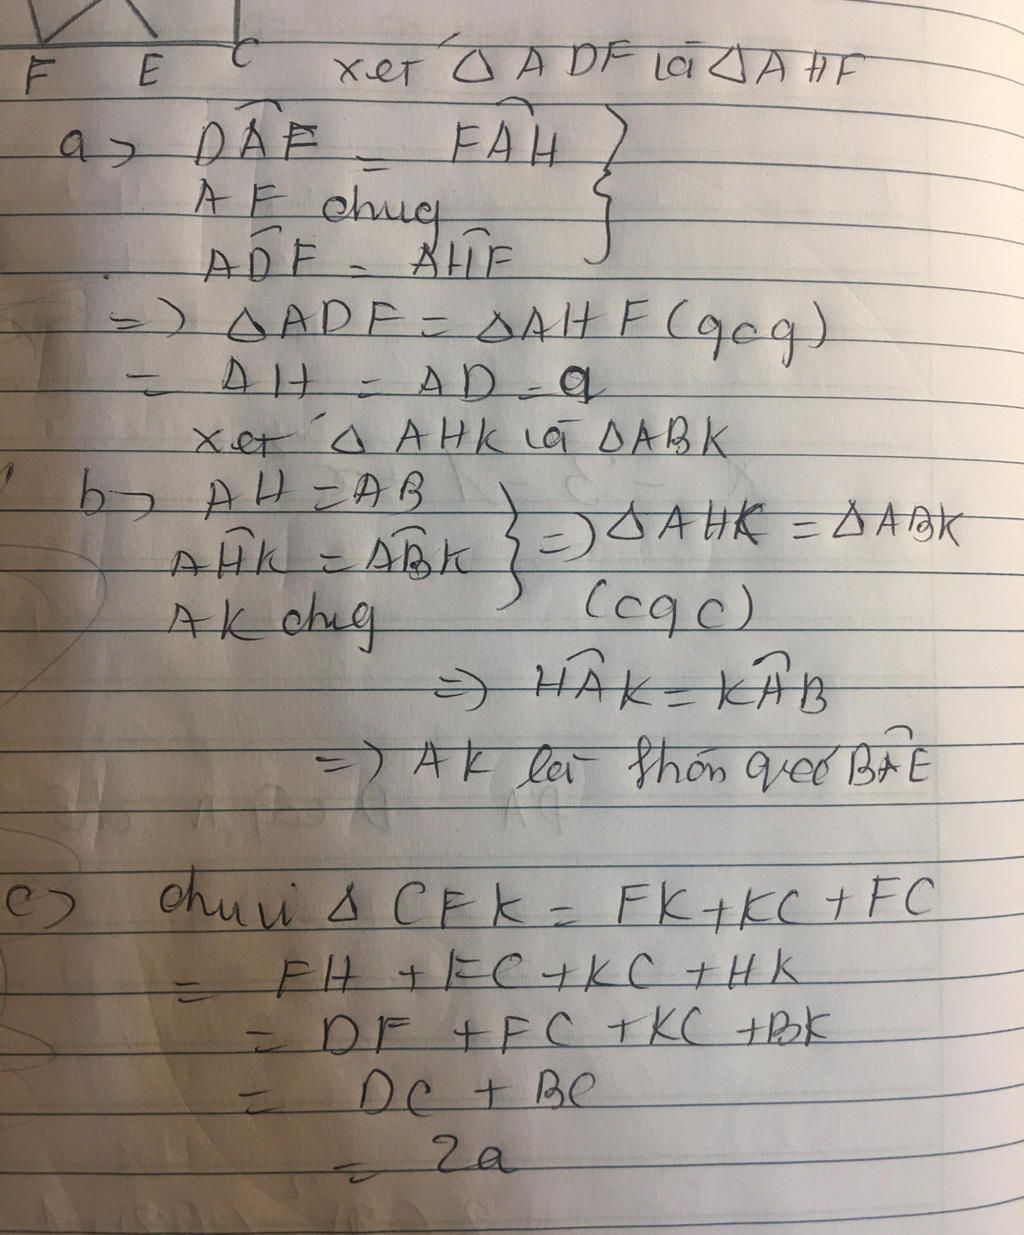 F E C xét ΔADF và ΔAHF
a> DAF = FAH
AF chug
ADF = AHF
=> ΔADF = ΔAHF (gcg)
= AH = AD = a
xét ΔAHK và ΔABK
b> AH = AB
AHK = ABK => ΔAHK = ΔABK
AK chug (cgc)
=> HAK = KAB
=> AK là phân giác BAE
c> chu vi Δ CFK = FK + KC + FC
= FH + FC + KC + HK
= DF + FC + KC + BK
= DC + BC
= 2a